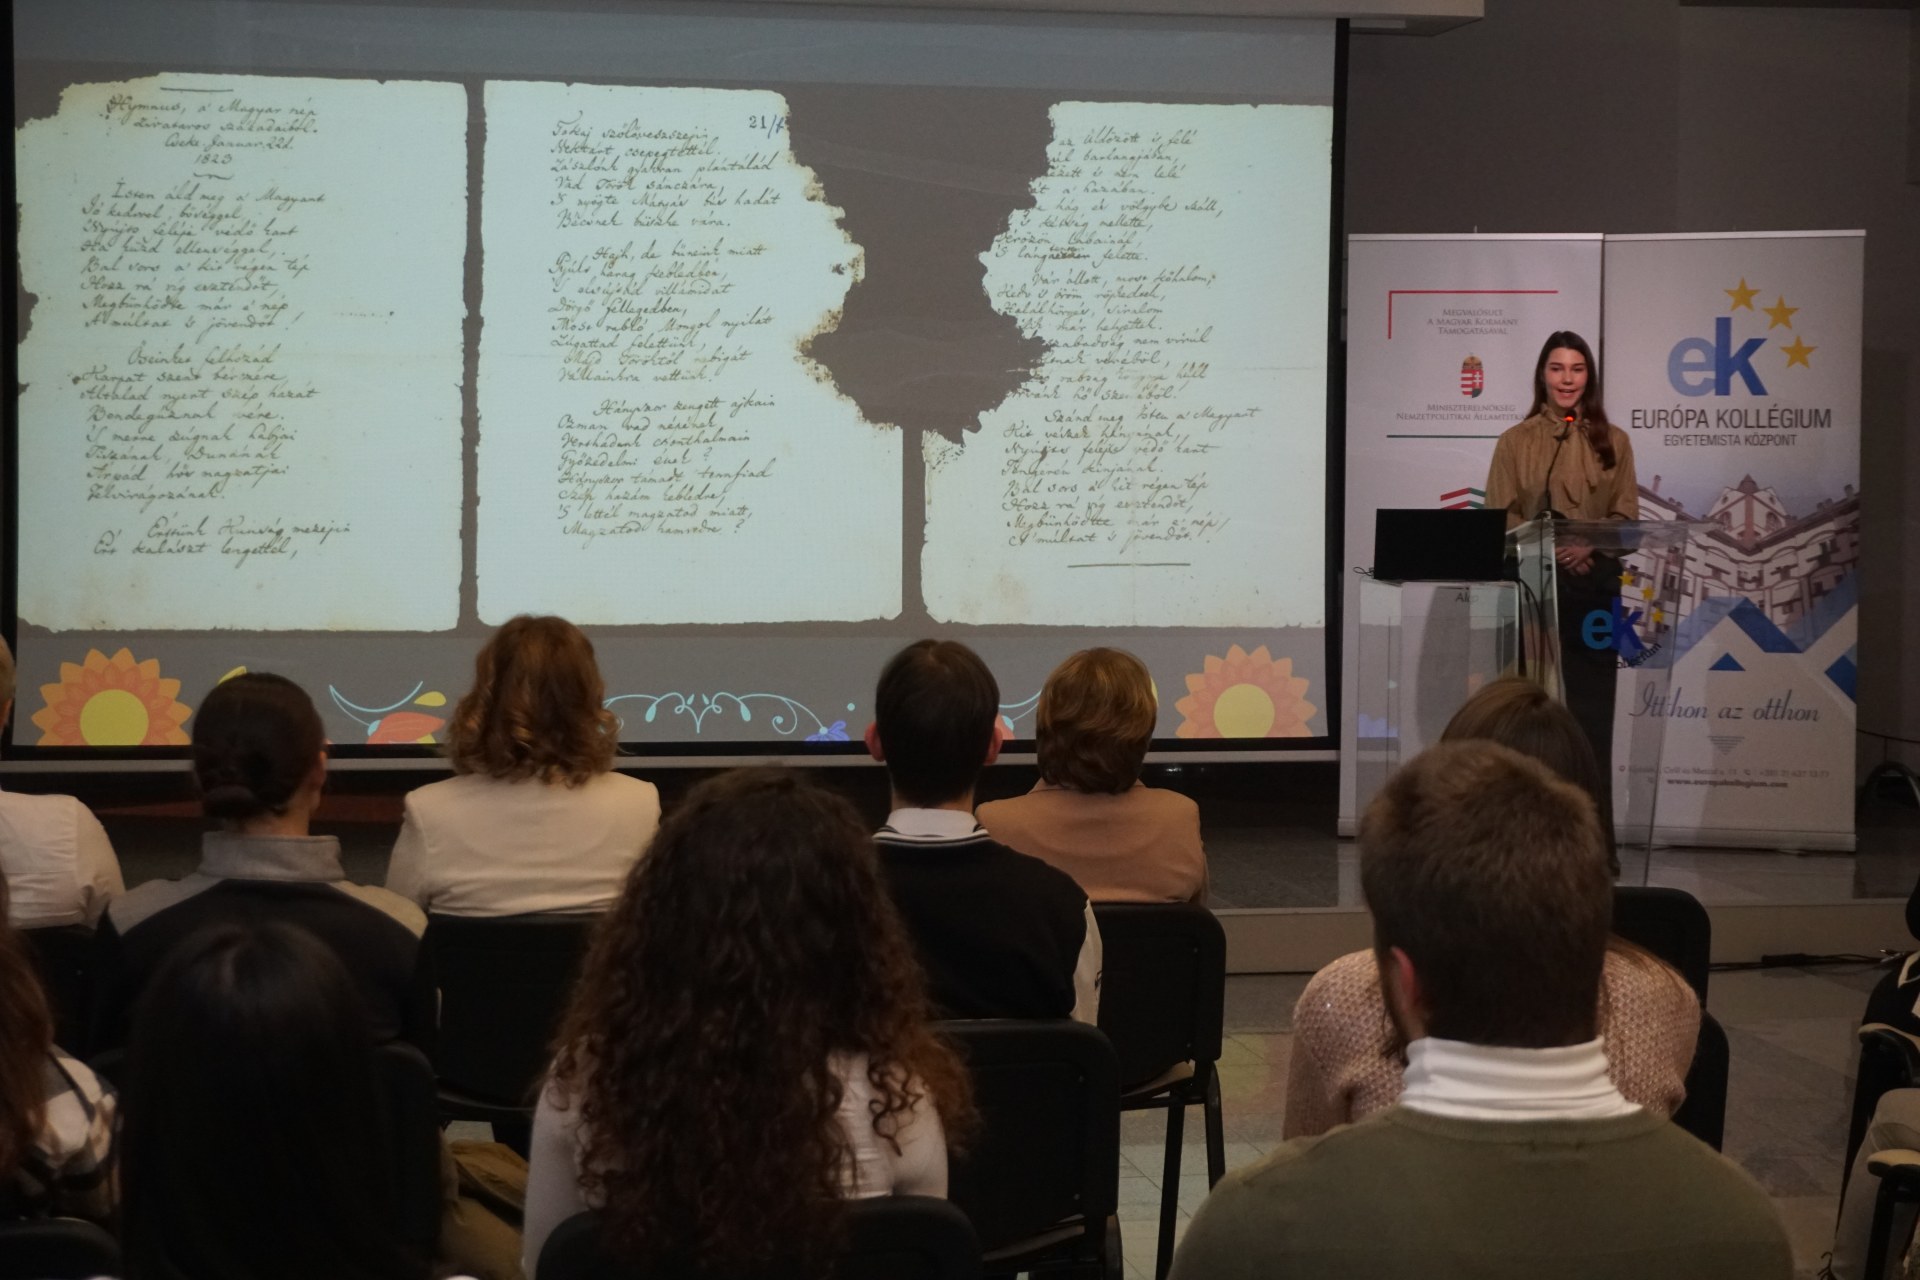 Hymnus, a' Magyar nép
zivataros századaiból.
Cseke. Január 22d.
1823
Isten áld meg a' Magyart
Jó kedvvel, bőséggel,
Nyújts felépe védő kart
Ha küzd ellenséggel;
Bal sors a' kit régen tép
Hozz rá víg esztendőt,
Megbünhödte már e' nép
A' múltat 's jövendőt!
Őseinket felhozád
Kárpát szent bérczére,
Általad nyert szép hazát
Bendegúznak vére.
'S merre zúgnak habjai
Tiszának, Dunának
Árpád hős magzatjai
Felvirágozának.
Értünk Kunság mezején
Ért kalászt lengettél,
21/f
Tokaj szőlővesszein
Nektárt csepegtettél.
Zászlónk gyakran plántálád
Vad Török sánczára,
'S nyögte Mátyás bús hadát
Bécsnek büszke vára.
Hajh, de bűneink miatt
Gyúlt harag kebledben,
'S elsújtád villámidat
Dörgő fellegedben,
Most rabló Mongol nyilát
Zúgattad felettünk,
Majd Töröktől rabigát
Vállainkra vettünk.
Hányszor zengett ajkain
Ozman vad népének
Vert hadunk csonthalmain
Győzedelmi ének?
Hányszor támadt tennfiad
Szép hazám kebledre,
'S lettél magzatod miatt,
Magzatod hamvedre?
az üldözött 's felé
barlangjában,
's nem lelé
a' hazában.
hág és völgybe száll,
's kétség mellette,
Vérözön lábainál,
'S lángtenger felette.
Vár állott, most kőhalom;
Kedv 's öröm röpkedtek,
Halálhörgés, siralom
már helyettek.
szabadság nem virúl
véréből,
rabság könnye hull
hő szeméből.
Szánd meg Isten a' Magyart
Kit vészek hányának,
Nyújts felépe védő kart
Tengerén kínjának.
Bal sors a' kit régen tép
Hozz rá víg esztendőt,
Megbünhödte már e' nép
A' múltat 's jövendőt!
MEGVALÓSULT
A MAGYAR KORMÁNY
TÁMOGATÁSÁVAL
MINISZTERELNÖKSÉG
NEMZETPOLITIKAI ÁLLAMTITK
ek
EURÓPA KOLLÉGIUM
EGYETEMISTA KÖZPONT
ek
Itthon az otthon
www.europakollegium.com